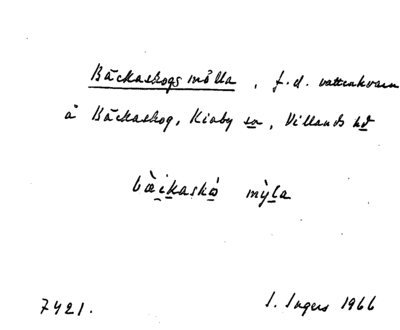 Bäckaskogs mölla, f.d. vattenkvarn
å Bäckaskog, Kiaby sn, Villands hd
bæ̀ikaskó mỳla
7421. I. Ingers 1966